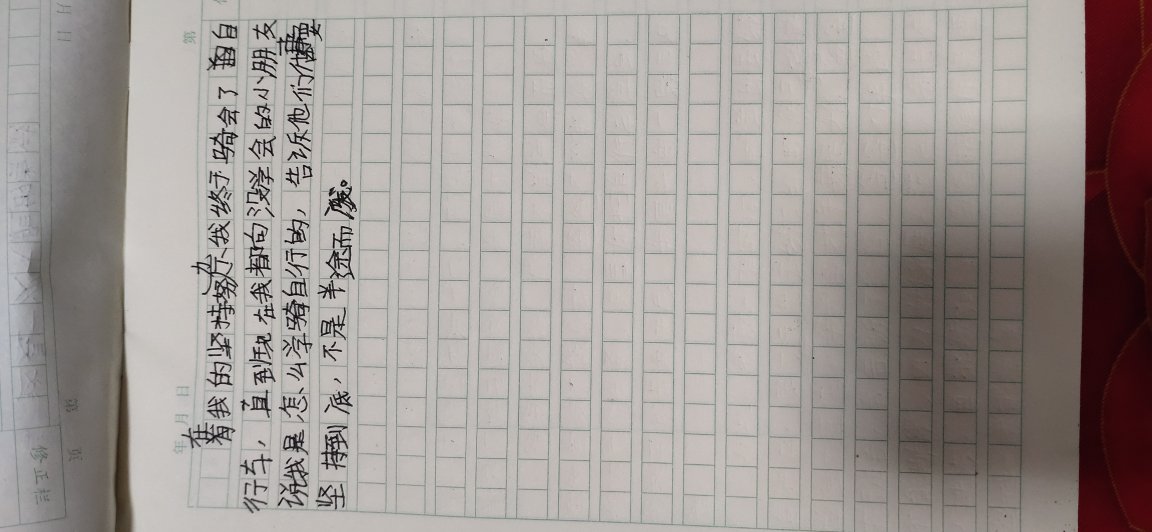 第
年 月 日
在我的坚持努力下,我终于骑会了自
行车，直到现在我都向没学会的小朋友
说我是怎么学骑自行的，告诉他们要
坚持到底，不是半途而废。
月 日
第 页
修正栏